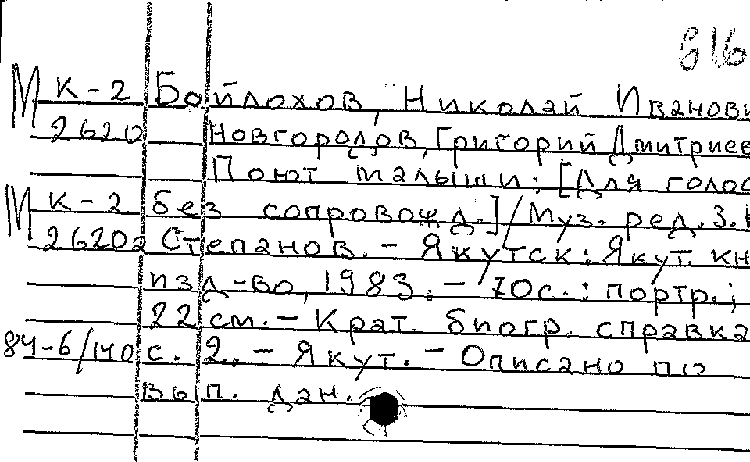 816
М К-2 Бойлохов, Николай Иванови
26202 Новгородов, Григорий Дмитриев
Поют малыши: [Для голос
М К-2 без сопровожд.] / Муз. ред. З.
26202 Степанов. - Якутск: Якут. кн
изд-во, 1983. - 70с.: портр.;
22 см. - Крат. биогр. справка
84-6/140 с. 2. - Якут. - Описано по
вып. дан.